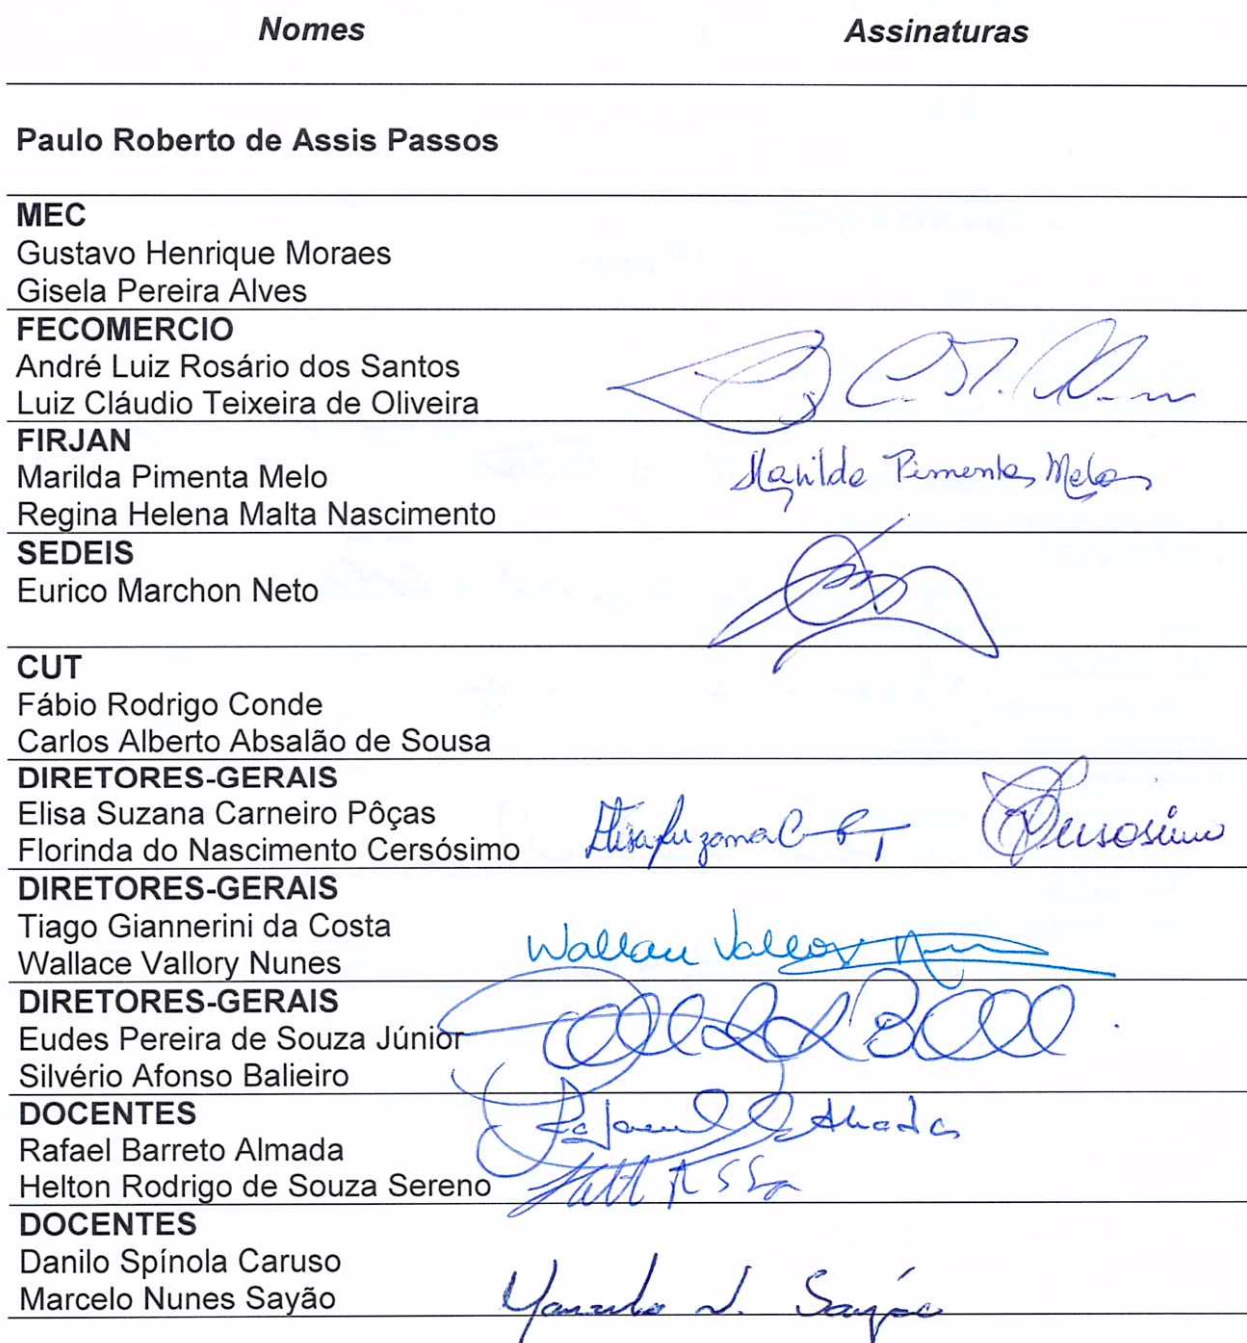 Nomes Assinaturas
Paulo Roberto de Assis Passos
MEC
Gustavo Henrique Moraes
Gisela Pereira Alves
FECOMERCIO
André Luiz Rosário dos Santos
Luiz Cláudio Teixeira de Oliveira
FIRJAN
Marilda Pimenta Melo Marilda Pimenta Melo
Regina Helena Malta Nascimento
SEDEIS
Eurico Marchon Neto
CUT
Fábio Rodrigo Conde
Carlos Alberto Absalão de Sousa
DIRETORES-GERAIS
Elisa Suzana Carneiro Pôças
Florinda do Nascimento Cersósimo Elisa Suzana C Cersósimo
DIRETORES-GERAIS
Tiago Giannerini da Costa
Wallace Vallory Nunes Wallace Vallory
DIRETORES-GERAIS
Eudes Pereira de Souza Júnior
Silvério Afonso Balieiro
DOCENTES
Rafael Barreto Almada Rafael Almada
Helton Rodrigo de Souza Sereno
DOCENTES
Danilo Spínola Caruso
Marcelo Nunes Sayão Marcelo N. Sayão